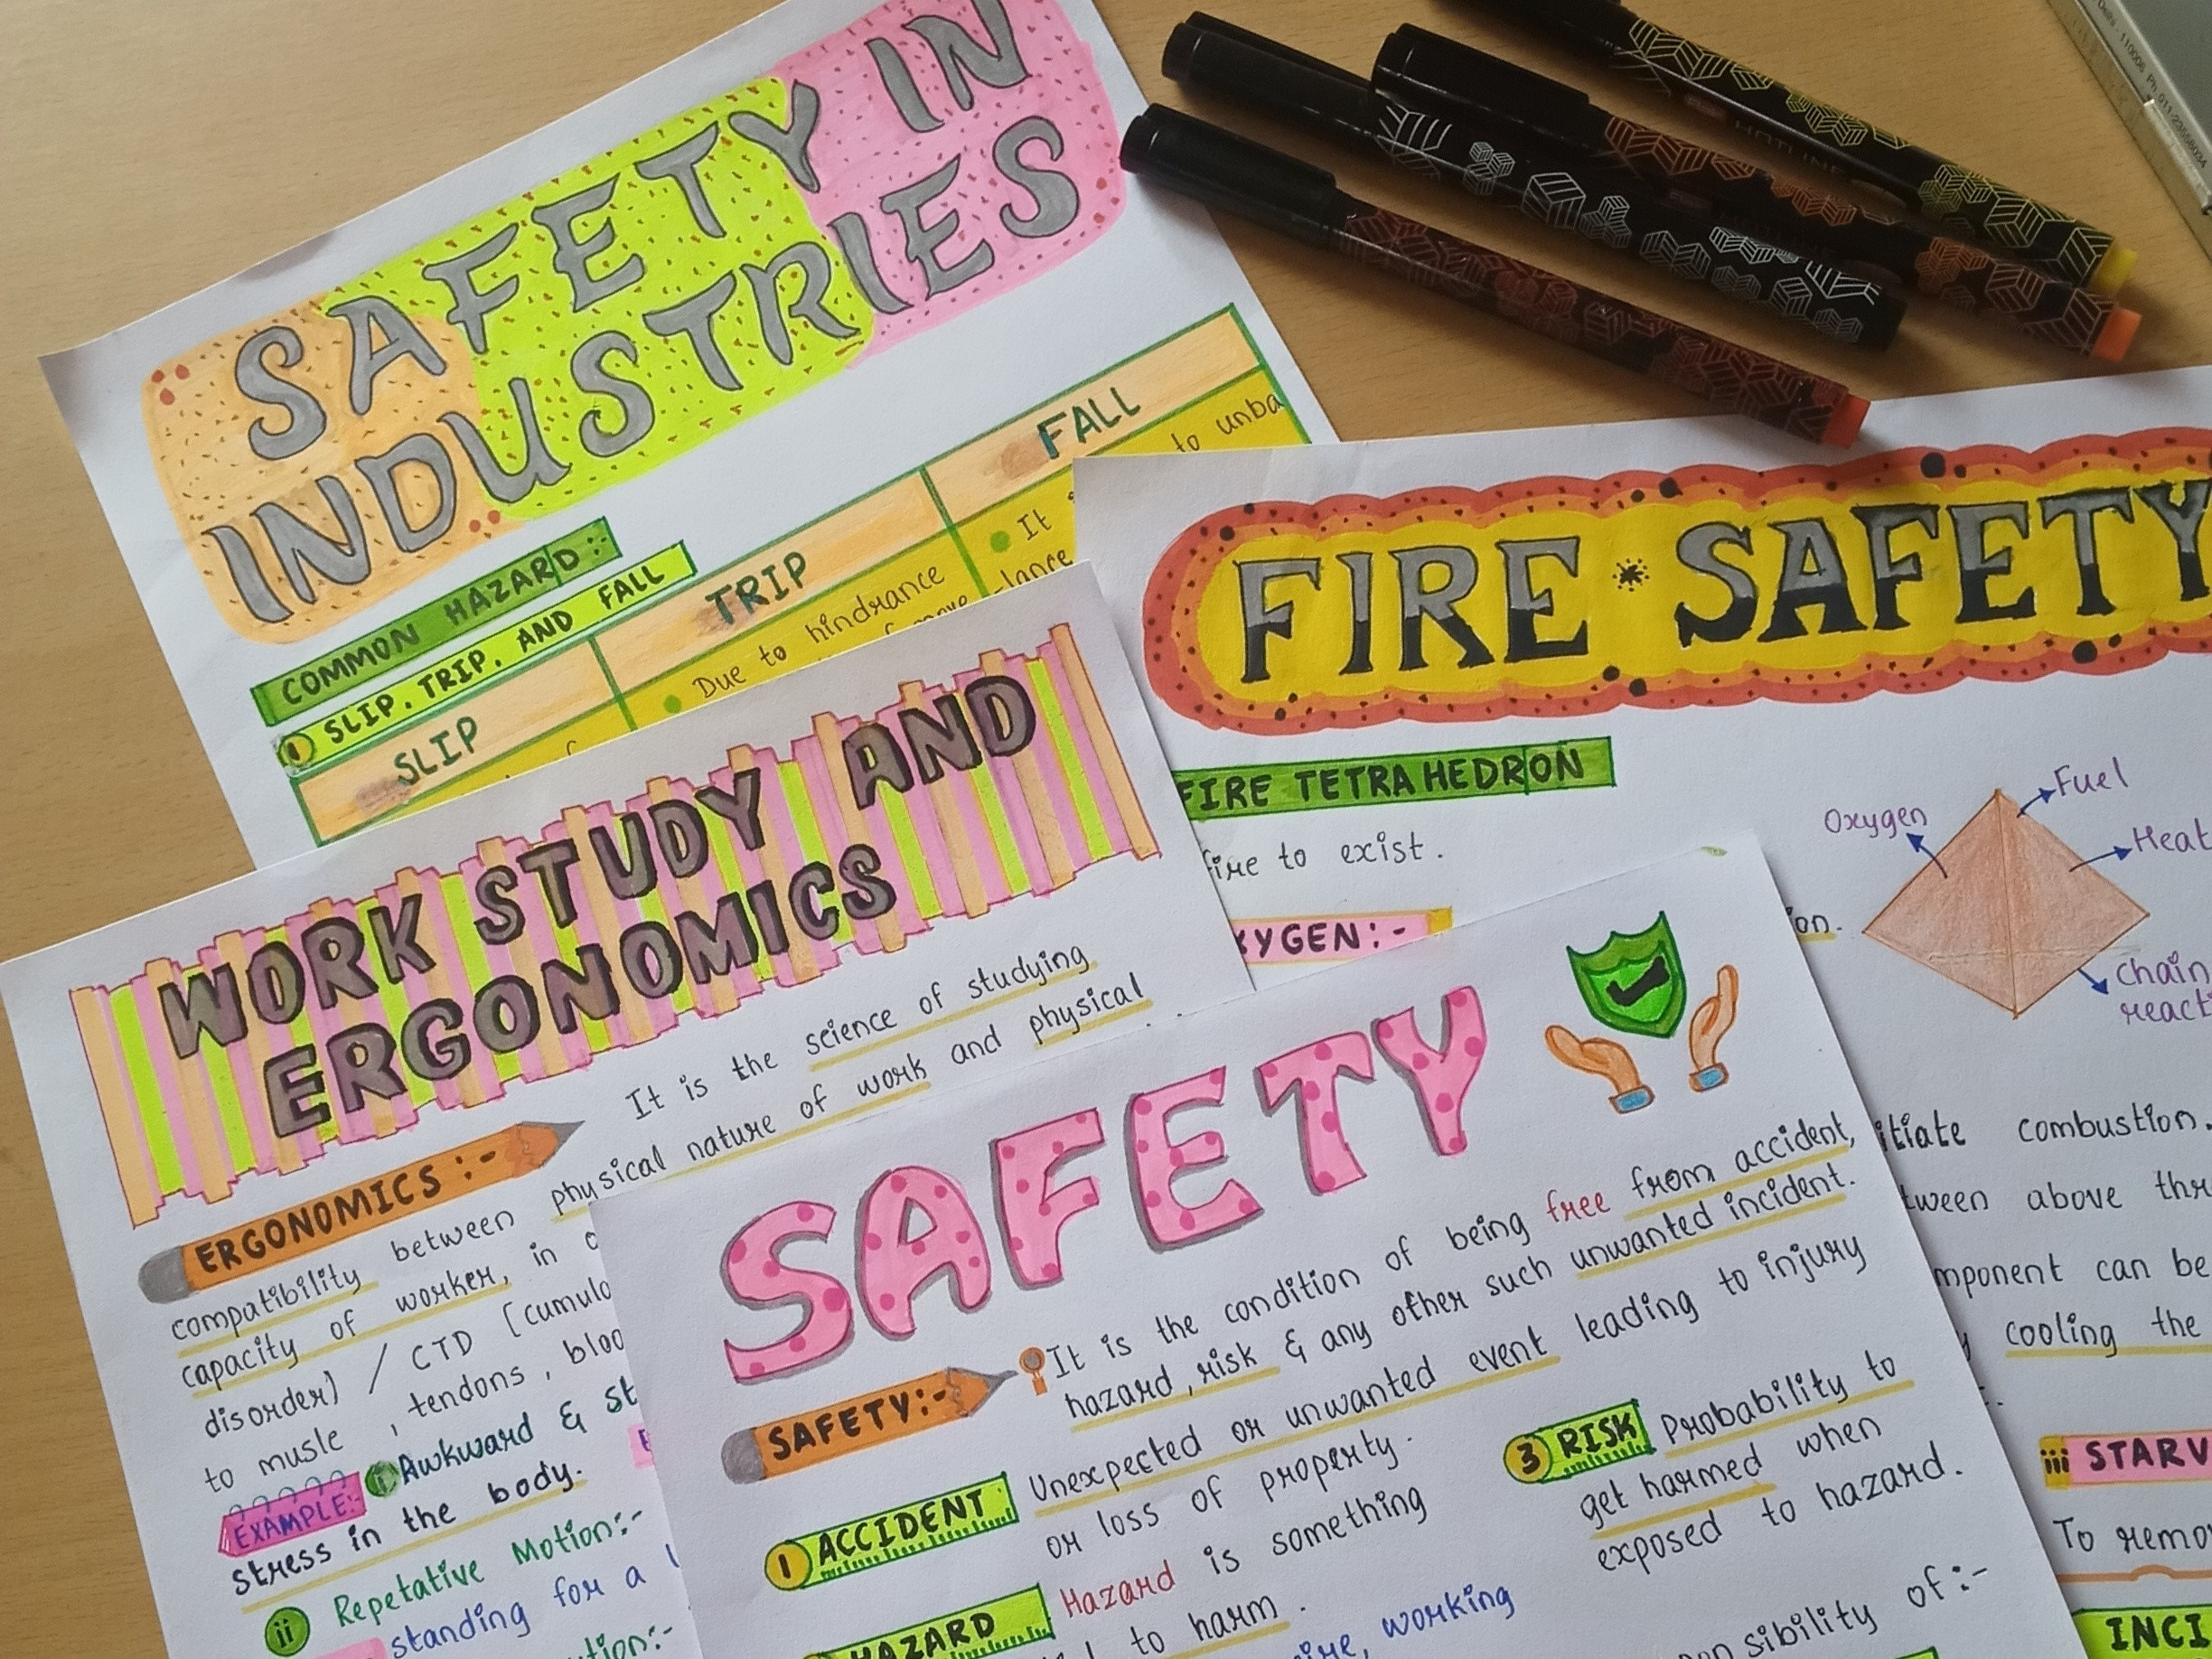 SAFETY IN
INDUSTRIES
COMMON HAZARD :-
1 SLIP, TRIP, AND FALL
SLIP
TRIP
FALL
Due to hindrance
to unba
It
lance
WORK STUDY AND
ERGONOMICS
ERGONOMICS :- It is the science of studying
compatibility between physical nature of work and physical
capacity of worker, in
disorder) / CTD [cumul
to musle , tendons , bloo
EXAMPLE:- i Awkward & st
stress in the body.
ii Repetative Motion:-
standing for a
FIRE SAFETY
FIRE TETRAHEDRON
fire to exist.
XYGEN:-
Oxygen
Fuel
Heat
Chain
react
itiate combustion.
tween above thr
mponent can be
cooling the
iii STARV
To remo
INCI
SAFETY
SAFETY:- It is the condition of being free from accident,
hazard, risk & any other such unwanted incident.
1 ACCIDENT Unexpected or unwanted event leading to injury
or loss of property.
HAZARD Hazard is something
to harm.
working
3 RISK Probability to
get harmed when
exposed to hazard.
sibility of:-
HOTLINE
Delhi - 110006 Ph. 011-23558034